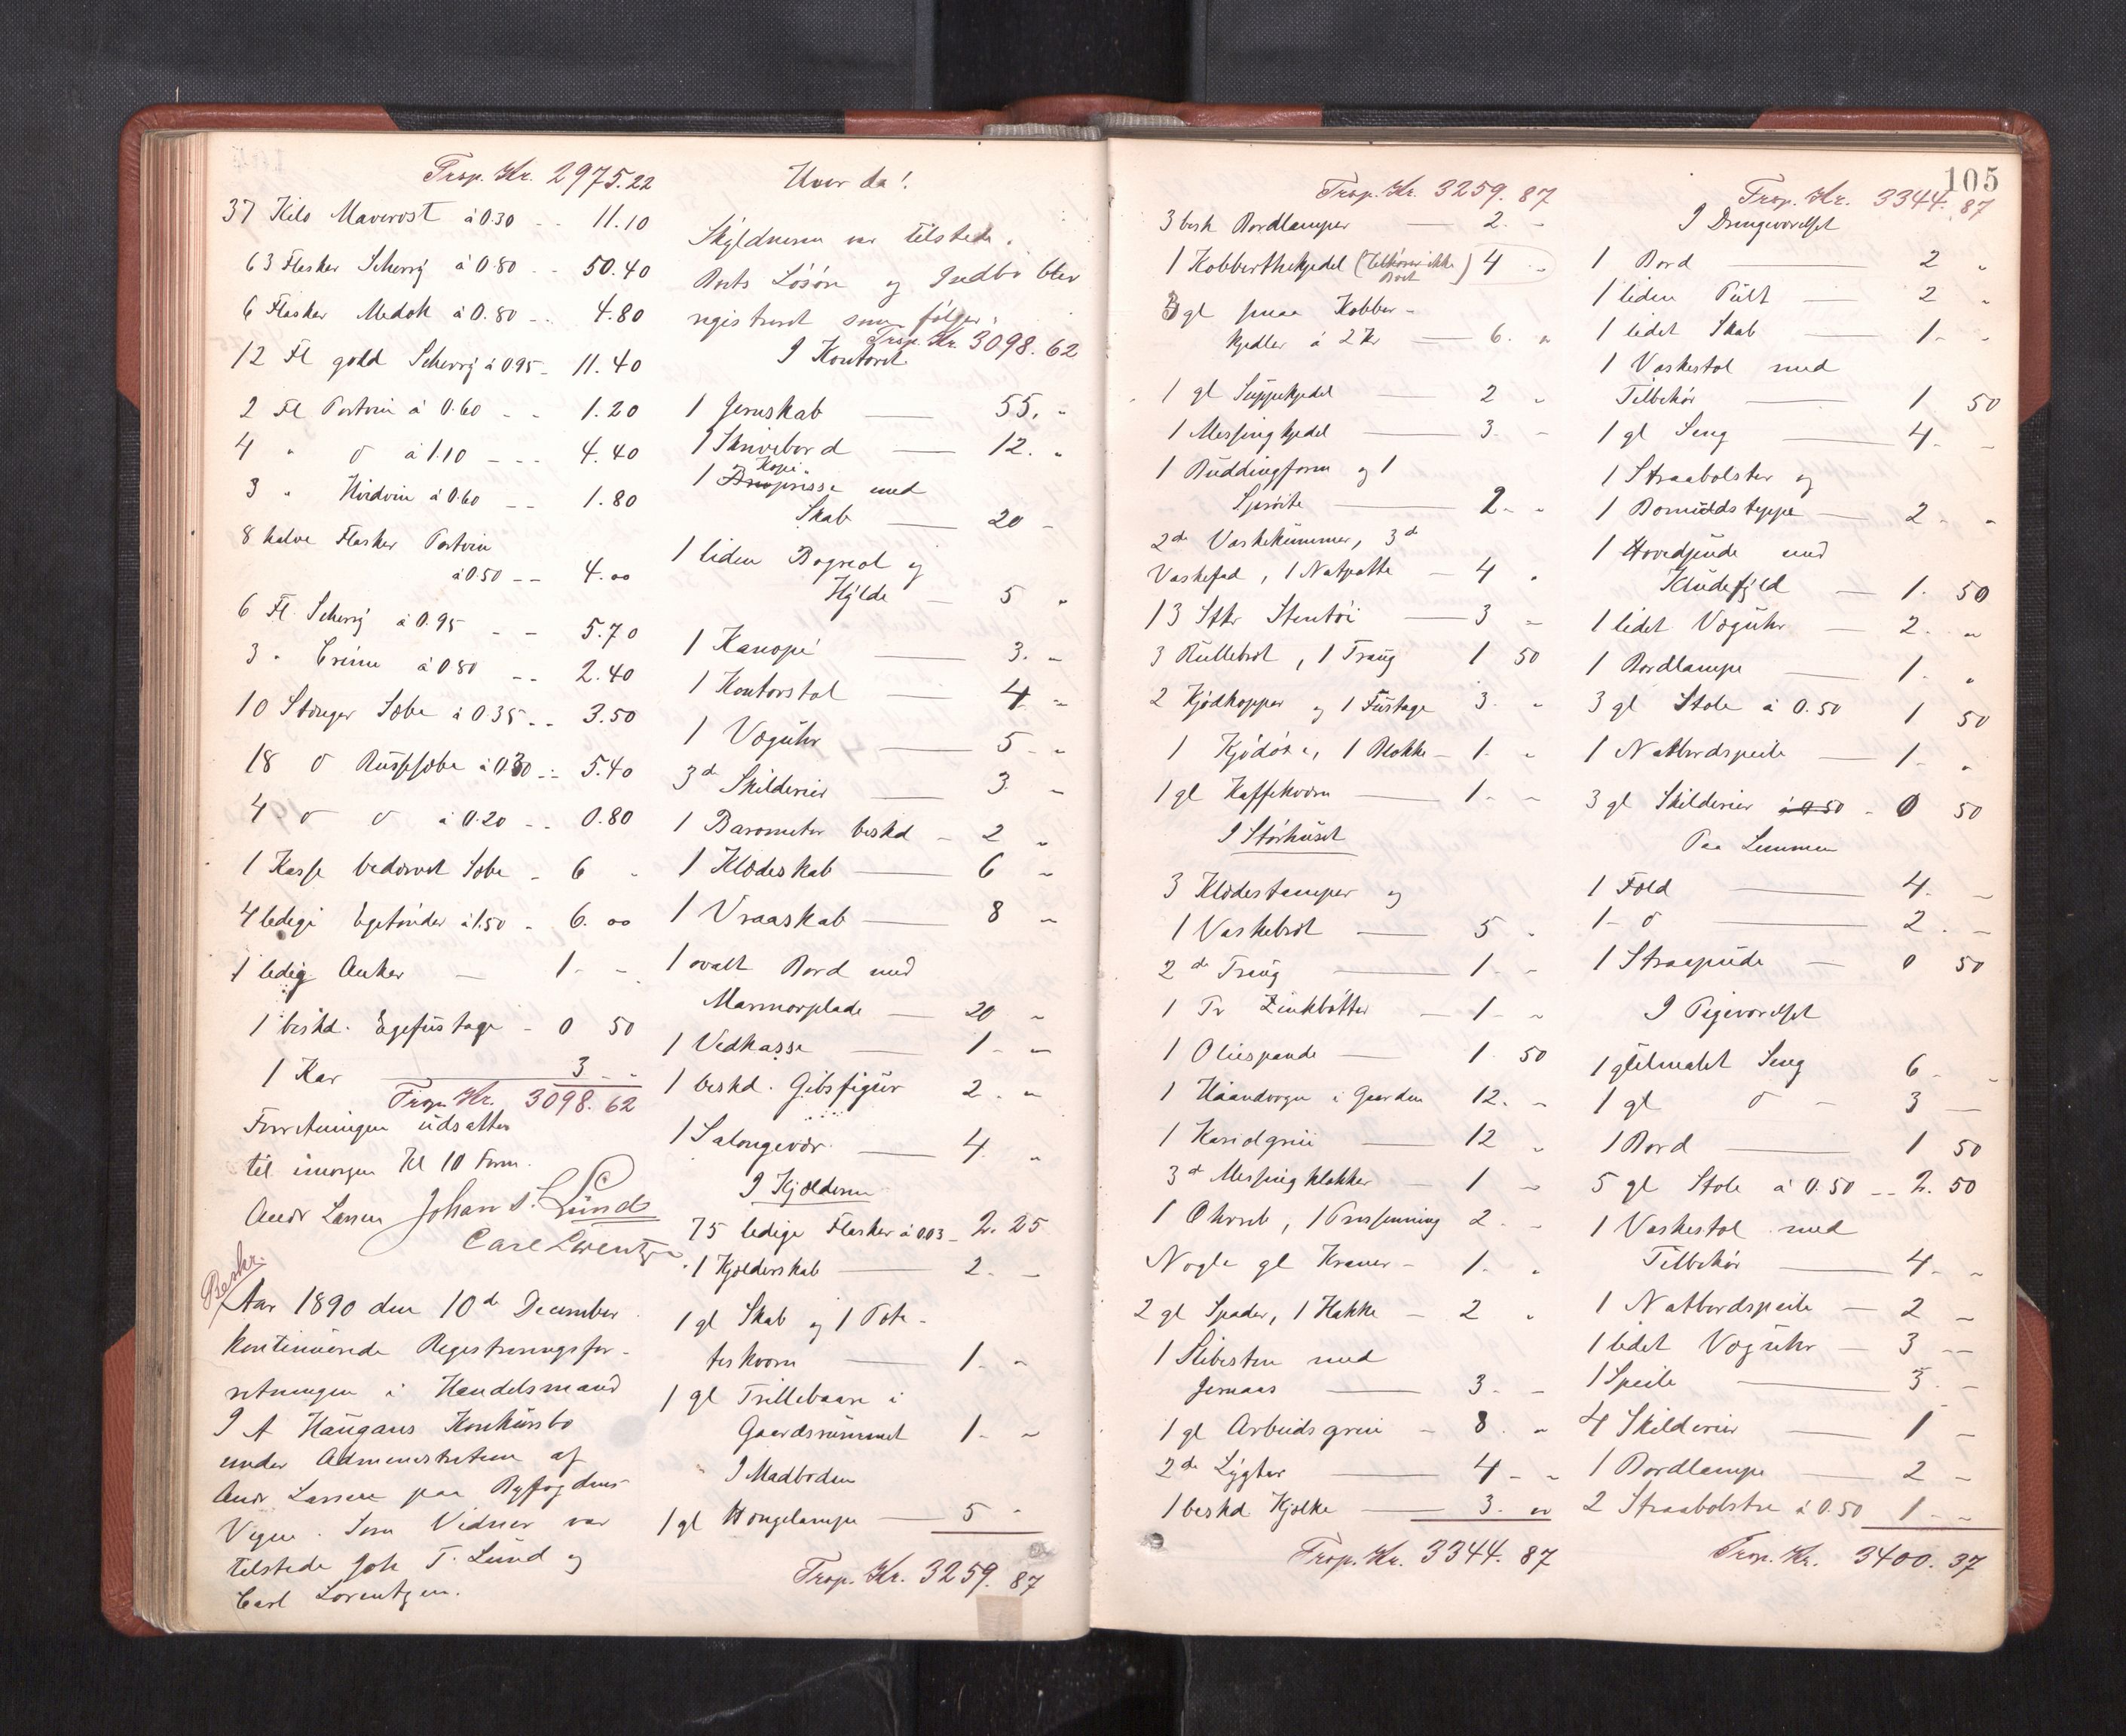 Trsp. Kr. 2975.22
37 Kilo Maverost à 0.30 - - 11.10
63 Flasker Scherrÿ à 0.80 - - 50.40
6 Flasker Medok à 0.80 - - 4.80
12 Fl gold Scherrÿ à 0.95 - 11.40
2 Fl Portvin à 0.60 - - 1.20
4 " d à 1.10 - - - 4.40
3 " Hvidvin à 0.60 - - 1.80
8 halve Flasker Portvin
à 0.50 - - 4.00
6 Fl. Scherrÿ à 0.95 - - 5.70
3 " à 0.80 - - 2.40
10 Stænger Sæbe à 0.35 - - 3.50
18 d Russesæbe à 0.30 - - 5.40
4 d d à 0.20 - - 0.80
1 Kasse bedærvet Sæbe - 6 -
4 ledige Egetønder à 1.50 - 6.00
1 ledig Anker - 1 - -
1 beskd. Egefustage - 0 50
1 Kar 3 - -
Trsp. Kr. 3098.62
Forretningen udsattes
til imorgen Kl 10 Form.
Andr Larsen Johan T. Lund
Carl Lorentzen
Beskr.
Aar 1890 den 10de December
kontinuerede Registreringsfor-
retningen i Handelsmand
I A Haugans Konkursbo
under Administration af
Andr Larsen paa Byfogdens
Vegne. Som Vidner var
tilstede Joh T. Lund og
Carl Lorentzen.
Hvor da!
Skyldneren var tilstede.
Boets Løsøre og Indbo blev
registreret som følger:
Trsp. Kr. 3098.62
I Kontoret
1 Jernskab 55. -
1 Skrivebord 12. -
1 Kopi
presse med
Skab 20 -
1 liden Bogreol og
Hylde 5 -
1 Kanopé 3. -
1 Kontorstol 4 -
1 Væguhr 5 - -
3de Skilderier 3 -
1 Barometer beskd - 2 -
1 Klædeskab 6 -
1 Vraaskab 8 -
1 ovalt Bord med
Marmorplade 20 -
1 Vedkasse 1 - -
1 beskd. Gibsfigur 2 - -
1 Salongevær 4 -
I Kjælderen
75 ledige Flasker à 0.03 - 2. 25
1 Kjælderskab 2. -
1 gl Skab og 1 Pote-
teskværn 1 - -
1 gl Trillebaare i
Gaardsrummet 1 - -
I Madboden
1 gl Hængelampe 5 -
Trsp. Kr. 3259. 87
105
Trsp. Kr. 3259. 87
3 besk Bordlamper 2. -
1 Kobberthekjedel (tilhører ikke Boet) 4 -
3 gl smaa Kobber-
kjedler à 2 Kr 6. -
1 gl Suppekjedel 2 -
1 Messingkjedel 3. -
1 Puddingform og 1
Sprøite 2 - -
2de Vaskekummer, 3de
Vaskefad, 1 Natpotte - 4 -
13 Stkr Stentøi 3 -
3 Rullebræt, 1 Traug 1 50
2 Kjødkopper og 1 Fustage 3. -
1 Kjødøxe, 1 Blokke - 1. -
1 gl Kaffekværn 1 - -
I Størhuset
3 Klædestamper og
1 Vaskebræt 5 -
2de Traug 1 - -
1 Pr Zinkbøtter - 1 - -
1 Oliespande 1 50
1 Haandvogn i Gaarden 12. -
1 Kariolgrei 12 -
3de Messingklokker - 1 -
1 Ohrsnb, 1 Presenning 2 - -
Nogle gl Kraner - 1. -
2 gl Spader, 1 Hakke - 2 -
1 Slibesten med
Jernaas 3 - -
1 gl Arbeidsgrei - 8 -
2de Lygter 4 - -
1 beskd Kjælke 3. -
Trsp. Kr. 3344. 87
Trsp. Kr. 3344. 87
I Drengeværelset
1 Bord 2 -
1 liden Pult 2 -
1 lidet Skab 1 - -
1 Vaskestol med
Tilbehør 1 50
1 gl Seng 4 - -
1 Straabolster og
1 Bomuldsteppe 2 - -
1 Hovedpude med
Kludefyld 1. 50
1 lidet Væguhr 2. -
1 Bordlampe 1. -
3 gl Stole à 0.50 1 50
1 Natbordspeile 1 - -
3 gl Skilderier à 0.50 - 0 50
Paa Lemmen
1 Fæld 4 - -
1 - d 2. -
1 Straapude 0 50
I Pigeværelset
1 gulmalet Seng 6 - -
1 gl d - 3 -
1 Bord 1 50
5 gl Stole à 0.50 - - 2. 50
1 Vaskestol med
Tilbehør 4 - -
1 Natbordspeile - 2 -
1 lidet Væguhr - 3 - -
1 Speile 3 - -
4 Skilderier 1 -
1 Bordlampe 2 -
2 Straabolstre à 0.50 1 - -
Trsp. Kr. 3400. 37